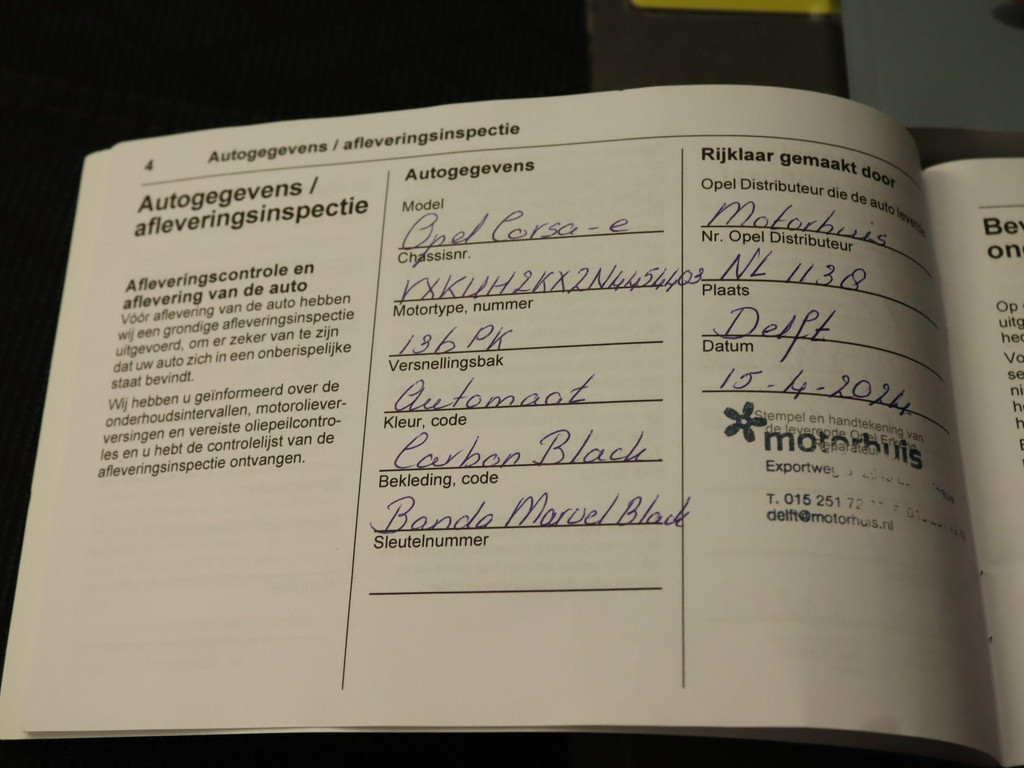 4
Autogegevens / afleveringsinspectie
Autogegevens /
afleveringsinspectie
Afleveringscontrole en
aflevering van de auto
Vóór aflevering van de auto hebben
wij een grondige afleveringsinspectie
uitgevoerd, om er zeker van te zijn
dat uw auto zich in een onberispelijke
staat bevindt.
Wij hebben u geïnformeerd over de
onderhoudsintervallen, motoroliever-
versingen en vereiste oliepeilcontro-
les en u hebt de controlelijst van de
afleveringsinspectie ontvangen.
Autogegevens
Model
Opel Corsa-e
Chassisnr.
VXKUHZKXZN4454403
Motortype, nummer
136 PK
Versnellingsbak
Automaat
Kleur, code
Carbon Black
Bekleding, code
Banda Marvel Black
Sleutelnummer
Rijklaar gemaakt door
Opel Distributeur die de auto
Motorhuis
Nr. Opel Distributeur
NL 1138
Plaats
Delft
Datum
15-4-2024
Stempel en handtekening van
de leverende Opel
motorhuis
Exportweg
T. 015 251 72
delft@motorhuis.nl
Op